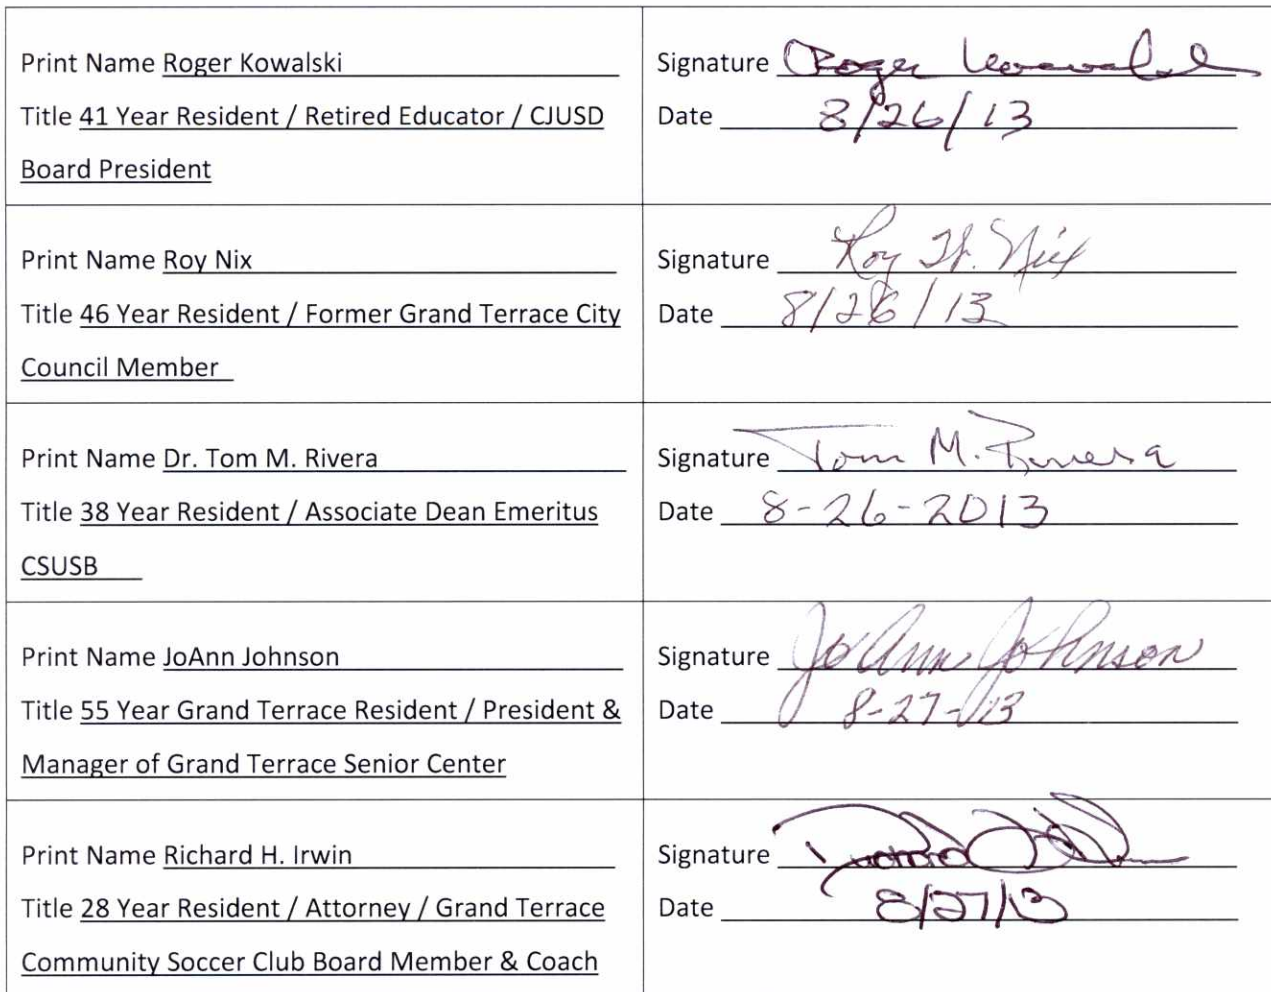 Print Name Roger Kowalski
Title 41 Year Resident / Retired Educator / CJUSD
Board President
Signature Roger Kowalski
Date 8/26/13
Print Name Roy Nix
Title 46 Year Resident / Former Grand Terrace City
Council Member
Signature Roy W. Nix
Date 8/26/13
Print Name Dr. Tom M. Rivera
Title 38 Year Resident / Associate Dean Emeritus
CSUSB
Signature Tom M. Rivera
Date 8-26-2013
Print Name JoAnn Johnson
Title 55 Year Grand Terrace Resident / President &
Manager of Grand Terrace Senior Center
Signature JoAnn Johnson
Date 8-27-13
Print Name Richard H. Irwin
Title 28 Year Resident / Attorney / Grand Terrace
Community Soccer Club Board Member & Coach
Signature Richard
Date 8/27/13